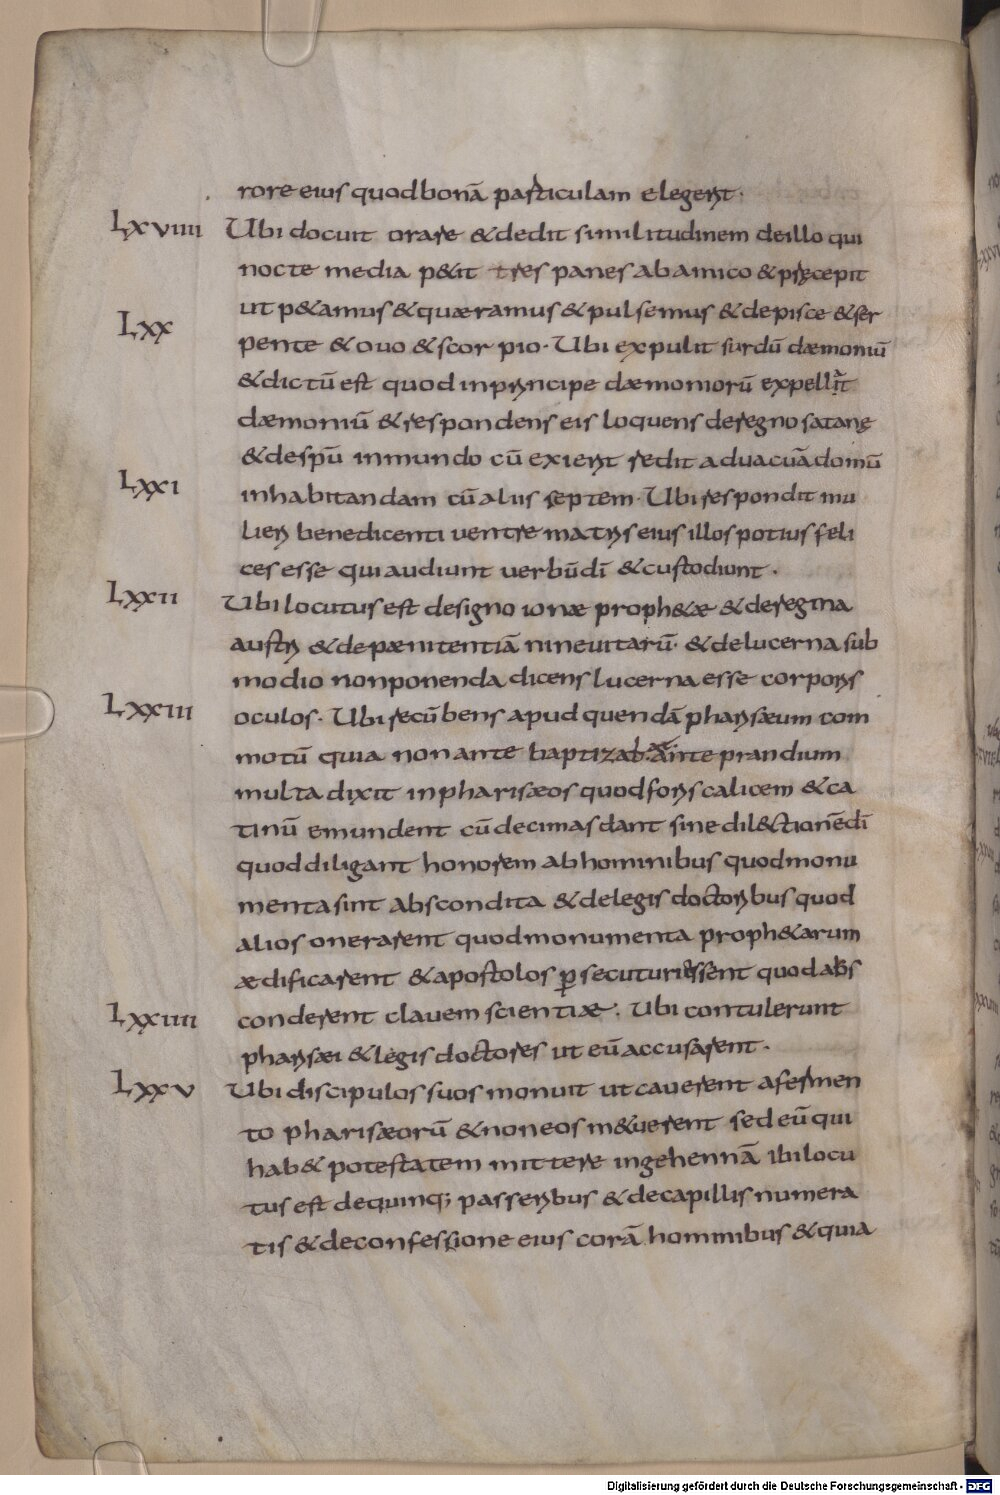 rore eius quod bonā particulam elegerit·
Lxviiii Ubi docuit orare & dedit similitudinem de illo qui
nocte media p&iit tres panes ab amico & pręcepit
ut p&amus & quæramus & pulsemus & de pisce & ser
Lxx pente & ouo & scorpio· Ubi expulit surdū dæmoniū
& dictū est quod in principe dæmoniorū expellit
dæmoniū & respondens eis loquens de regno satanę
& de spū inmundo cū exierit redit ad uacuā domū
Lxxi inhabitandam cū aliis septem· Ubi respondit mu
lieri benedicenti uentre matris eius illos potius feli
ces esse qui audiunt uerbū dī & custodiunt·
Lxxii Ubi locutus est de signo ionæ proph&æ & de regina
austri & de pænitentiā nineuitarū· & de lucerna sub
modio non ponenda dicens lucerna esse corporis
Lxxiii oculos· Ubi recūbens apud quendā pharisæum com
motū quia non ante baptizab· ante prandium
multa dixit in pharisæos quod foris calicem & ca
tinū emundent cū decimas dant sine dil&ctionē dī
quod diligant honorem ab hominibus quod monu
menta sint abscondita & de legis doctoribus quod
alios onerarent quod monumenta proph&arum
ædificarent & apostolos ꝑsecuturi essent quod abs
Lxxiiii conderent clauem scientiæ· Ubi contulerunt
pharisæi & legis doctores ut eū accusarent·
Lxxv Ubi discipulos suos monuit ut cauerent a fermen
to pharisæorū & non eos m&uerent sed eū qui
hab& potestatem mittere in gehennā ibi locu
tus est de quinq; passeribus & de capillis numera
tis & de confessione eius corā hominibus & quia
Digitalisierung gefördert durch die Deutsche Forschungsgemeinschaft - DFG